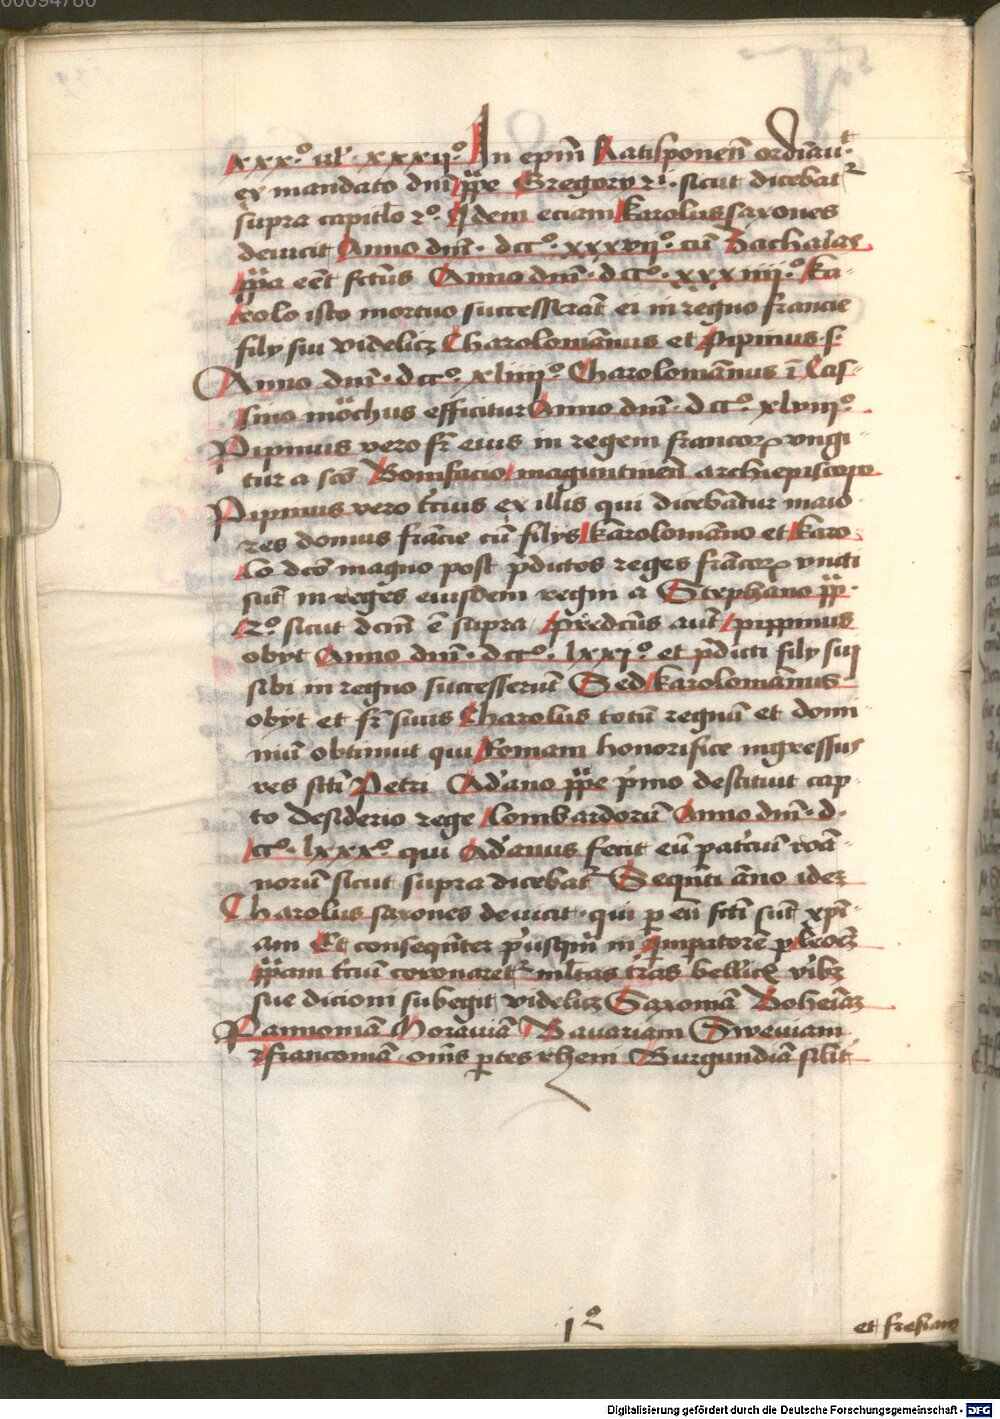 00094780
xxx.º ul'. xxxij.º In epm̄ Ratisponen̄ ordīauit
ex mandato dn̄i ppe Gregory 2i. sicut dicebat2
supra capitl'o 2º. Idem eciam karolus saxones
deuicit Anno dn̄i. dccº. xxxvijº. cū
ppa eēt fctūs Anno dn̄i. dccº. xxxiiijº. ka-
rolo isto mortuo successerāt ei in regno francie
fily sui videlicz Charolomānus et pipinus. s.
Anno dn̄i. dccº. xliiijº. Charolomānus ī Cas-
sino mōchus efficitur Anno dn̄i. dccº. xlviijº.
Pipinus vero fr̄ eius in regem francoꝝ vngi-
tur a scō Bonifacio maguntinen̄ archiepiscopo
Pipinus vero t'cius ex illis qui dicebātur maio-
res domus frācie cū filys karolomāno et karo-
lo dcō magno post p̄dictos reges frācoꝝ vncti
sūt in reges eiusdem regni a Stephano pp.
2º. sicut dcm̄ ē supra predcūs aut̄ pippinus
obyt Anno dn̄i. dccº. lxxjº. et p̄dicti fily sui
sibi in regno successerūt Sed karolomānus
obyt et fr̄ suus Charolus totū regnū et domi-
niū obtinuit qui Romam honorifice ingressus
res scti Petri Ad'ano ppe p'mo destituit cap-
to desiderio rege lombardorū Anno dn̄i. d.
ccº. lxxxº. qui Ad'anus fecit eū patciū roā-
norū sicut supra dicebat2 Sequēti āno idez
Charolus saxones deuicit. qui p eū fcti sūt xpi-
am Et conseqūter p'usqm̄ in Impatorē p leoēz
ppam t'ciū coronaret2 ml'tas t'ras bellicꝫ v'ibz
sue dicioni subegit videlicz Saxoniā Boheiāz
Pannoniā Morauiā Bauariam Sweuiam
2 franconiā om̄s ptes rheni Burgundiā silit'
jº
et fresiam
Digitalisierung gefördert durch die Deutsche Forschungsgemeinschaft - DFG